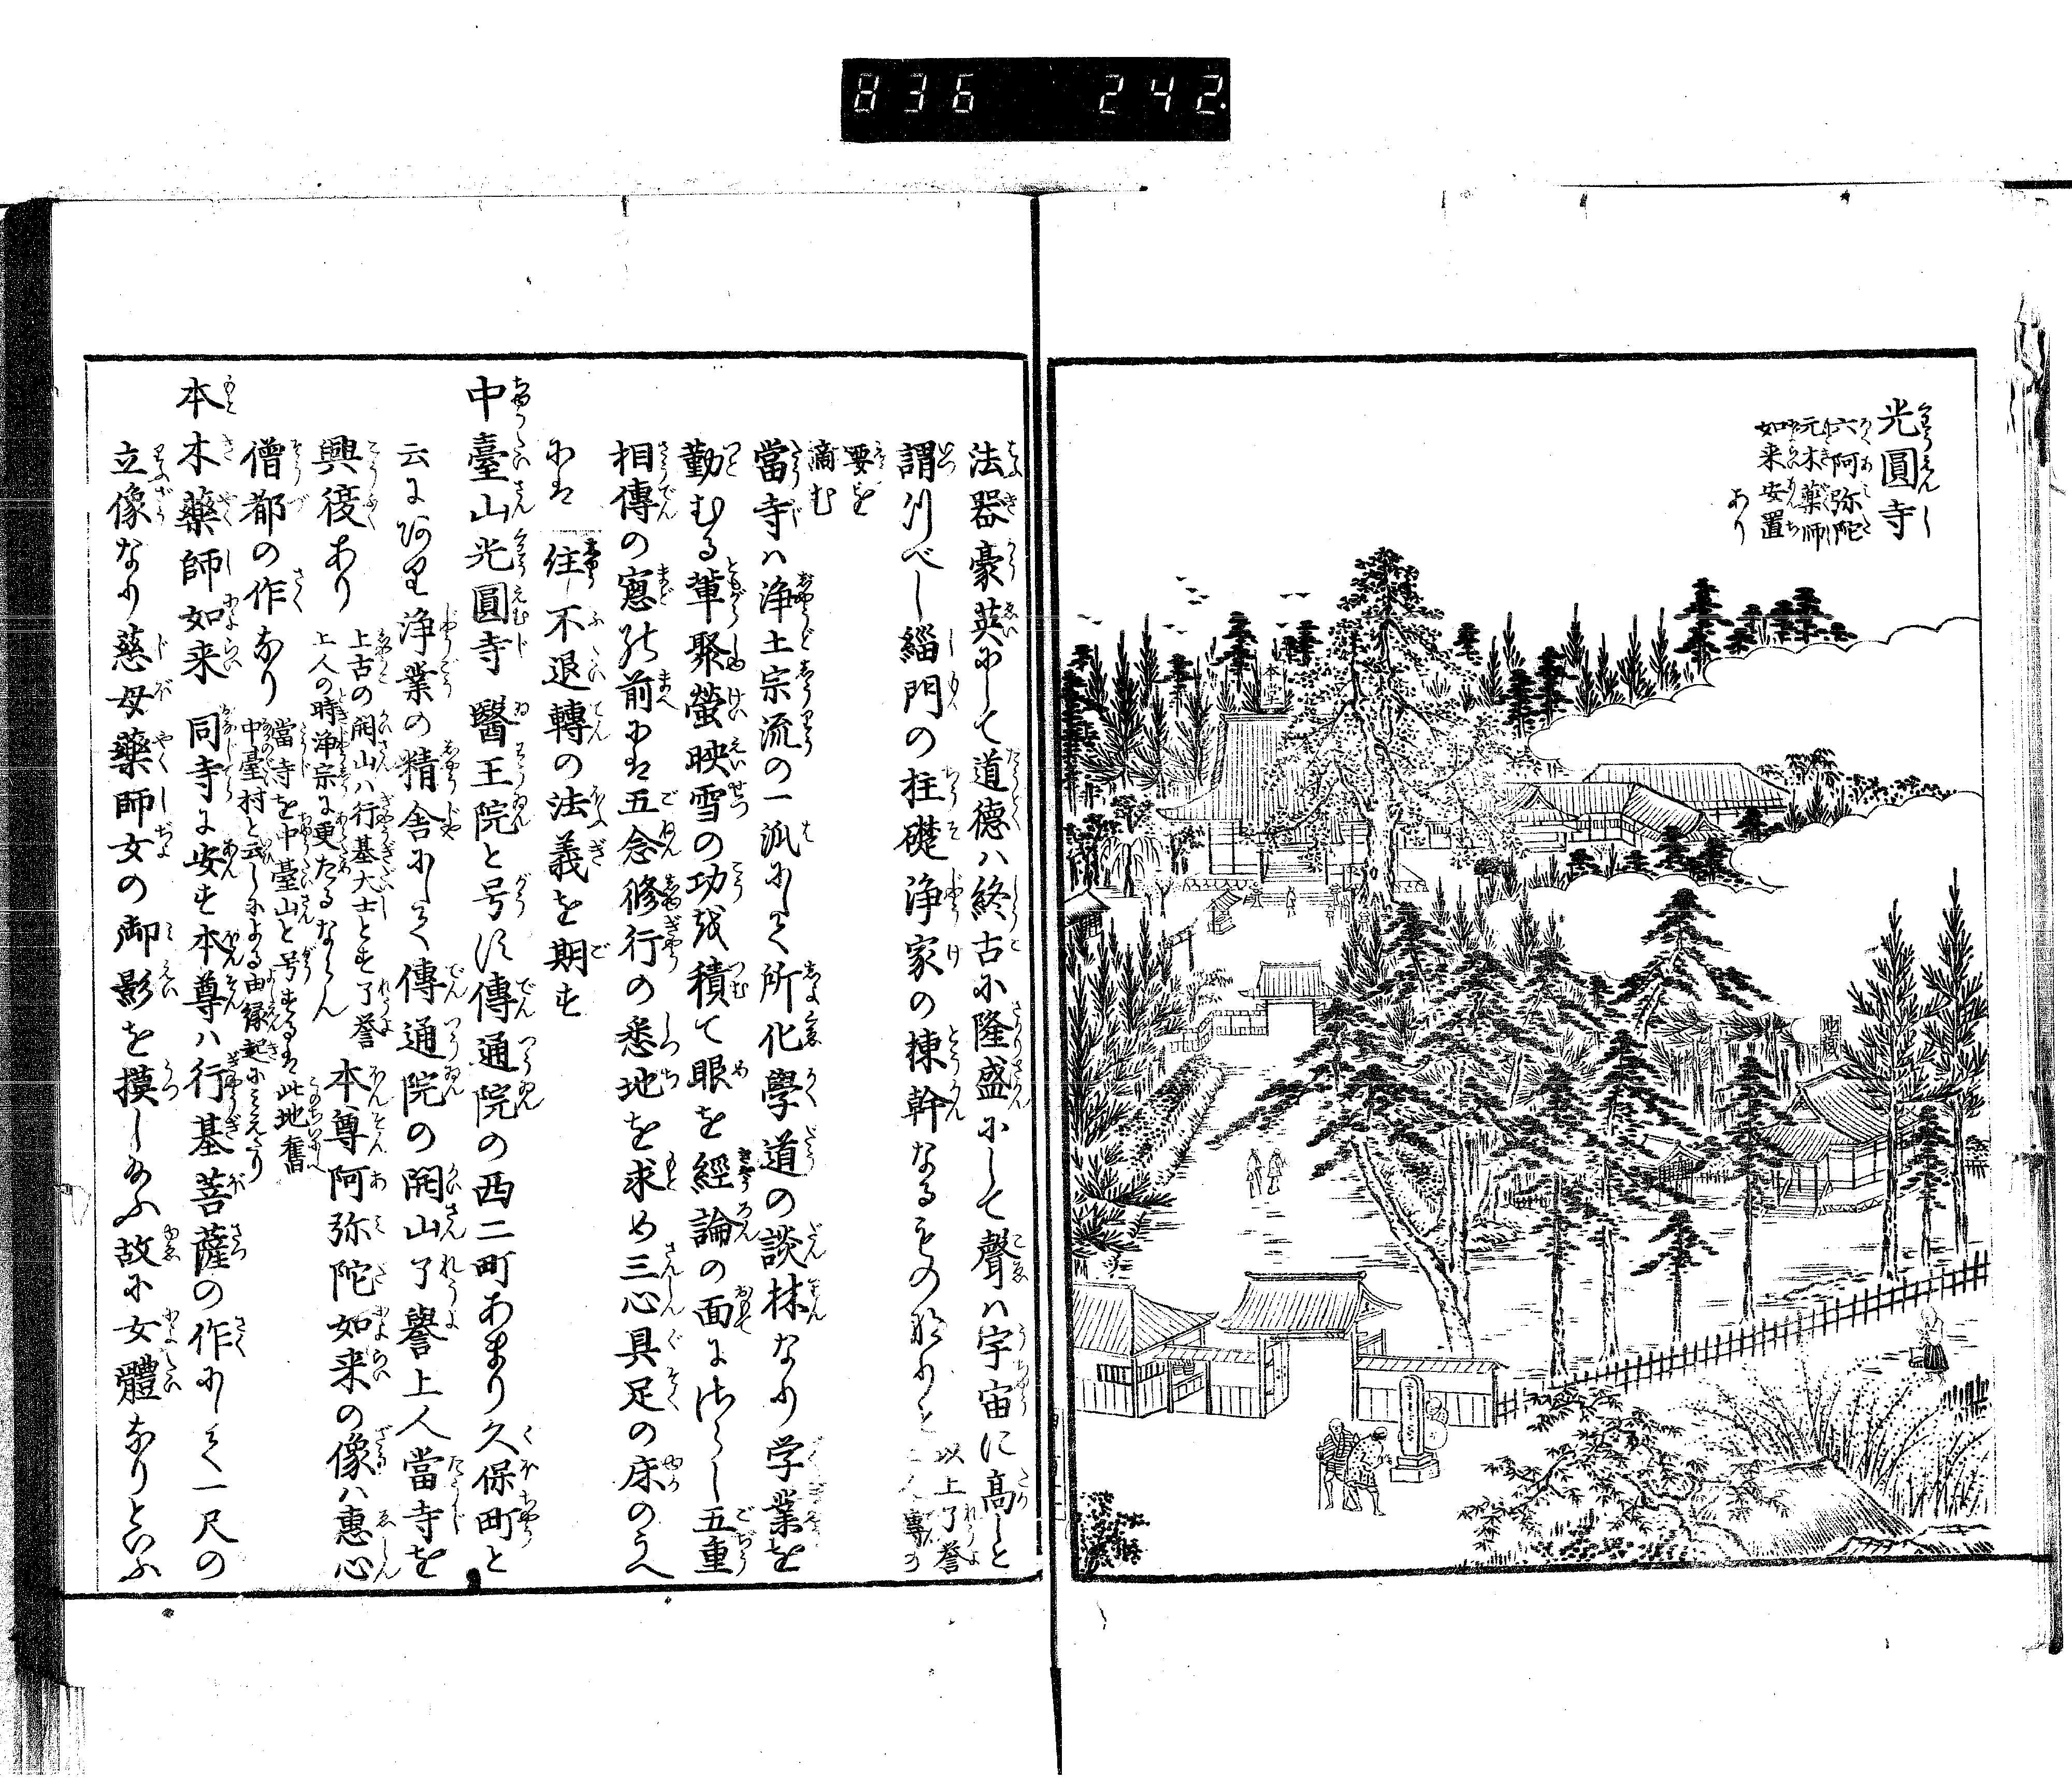 836 242
光圓寺
六阿弥陀
元木薬師
如来安置
あり
本堂
地蔵
法器豪英にして道徳ハ終古に隆盛にして聲ハ宇宙に高しと
謂つべし緇門の柱礎浄家の棟幹なるもの歟と以上了誉
上人専の
要を
摘む
當寺ハ浄土宗流の一派にして所化學道の談林なり学業を
勤むる輩聚螢映雪の功を積て眼を經論の面にさらし五重
相傳の窓の前にハ五念修行の悉地を求め三心具足の床のうへ
にハ住不退轉の法義を期す
中臺山光圓寺 醫王院と号す傳通院の西二町あまり久保町と
云にあり浄業の精舎にして傳通院の開山了譽上人當寺を
興復あり上古の開山ハ行基大士とす了誉
上人の時浄宗に更たるならん本尊阿弥陀如来の像ハ惠心
僧都の作なり當寺を中臺山と号するハ此地舊
中臺村と云しによる由縁起にみえたり
本木薬師如来 同寺に安す本尊ハ行基菩薩の作にして一尺の
立像なり慈母薬師女の御影を摸し給ふ故に女體なりといふ